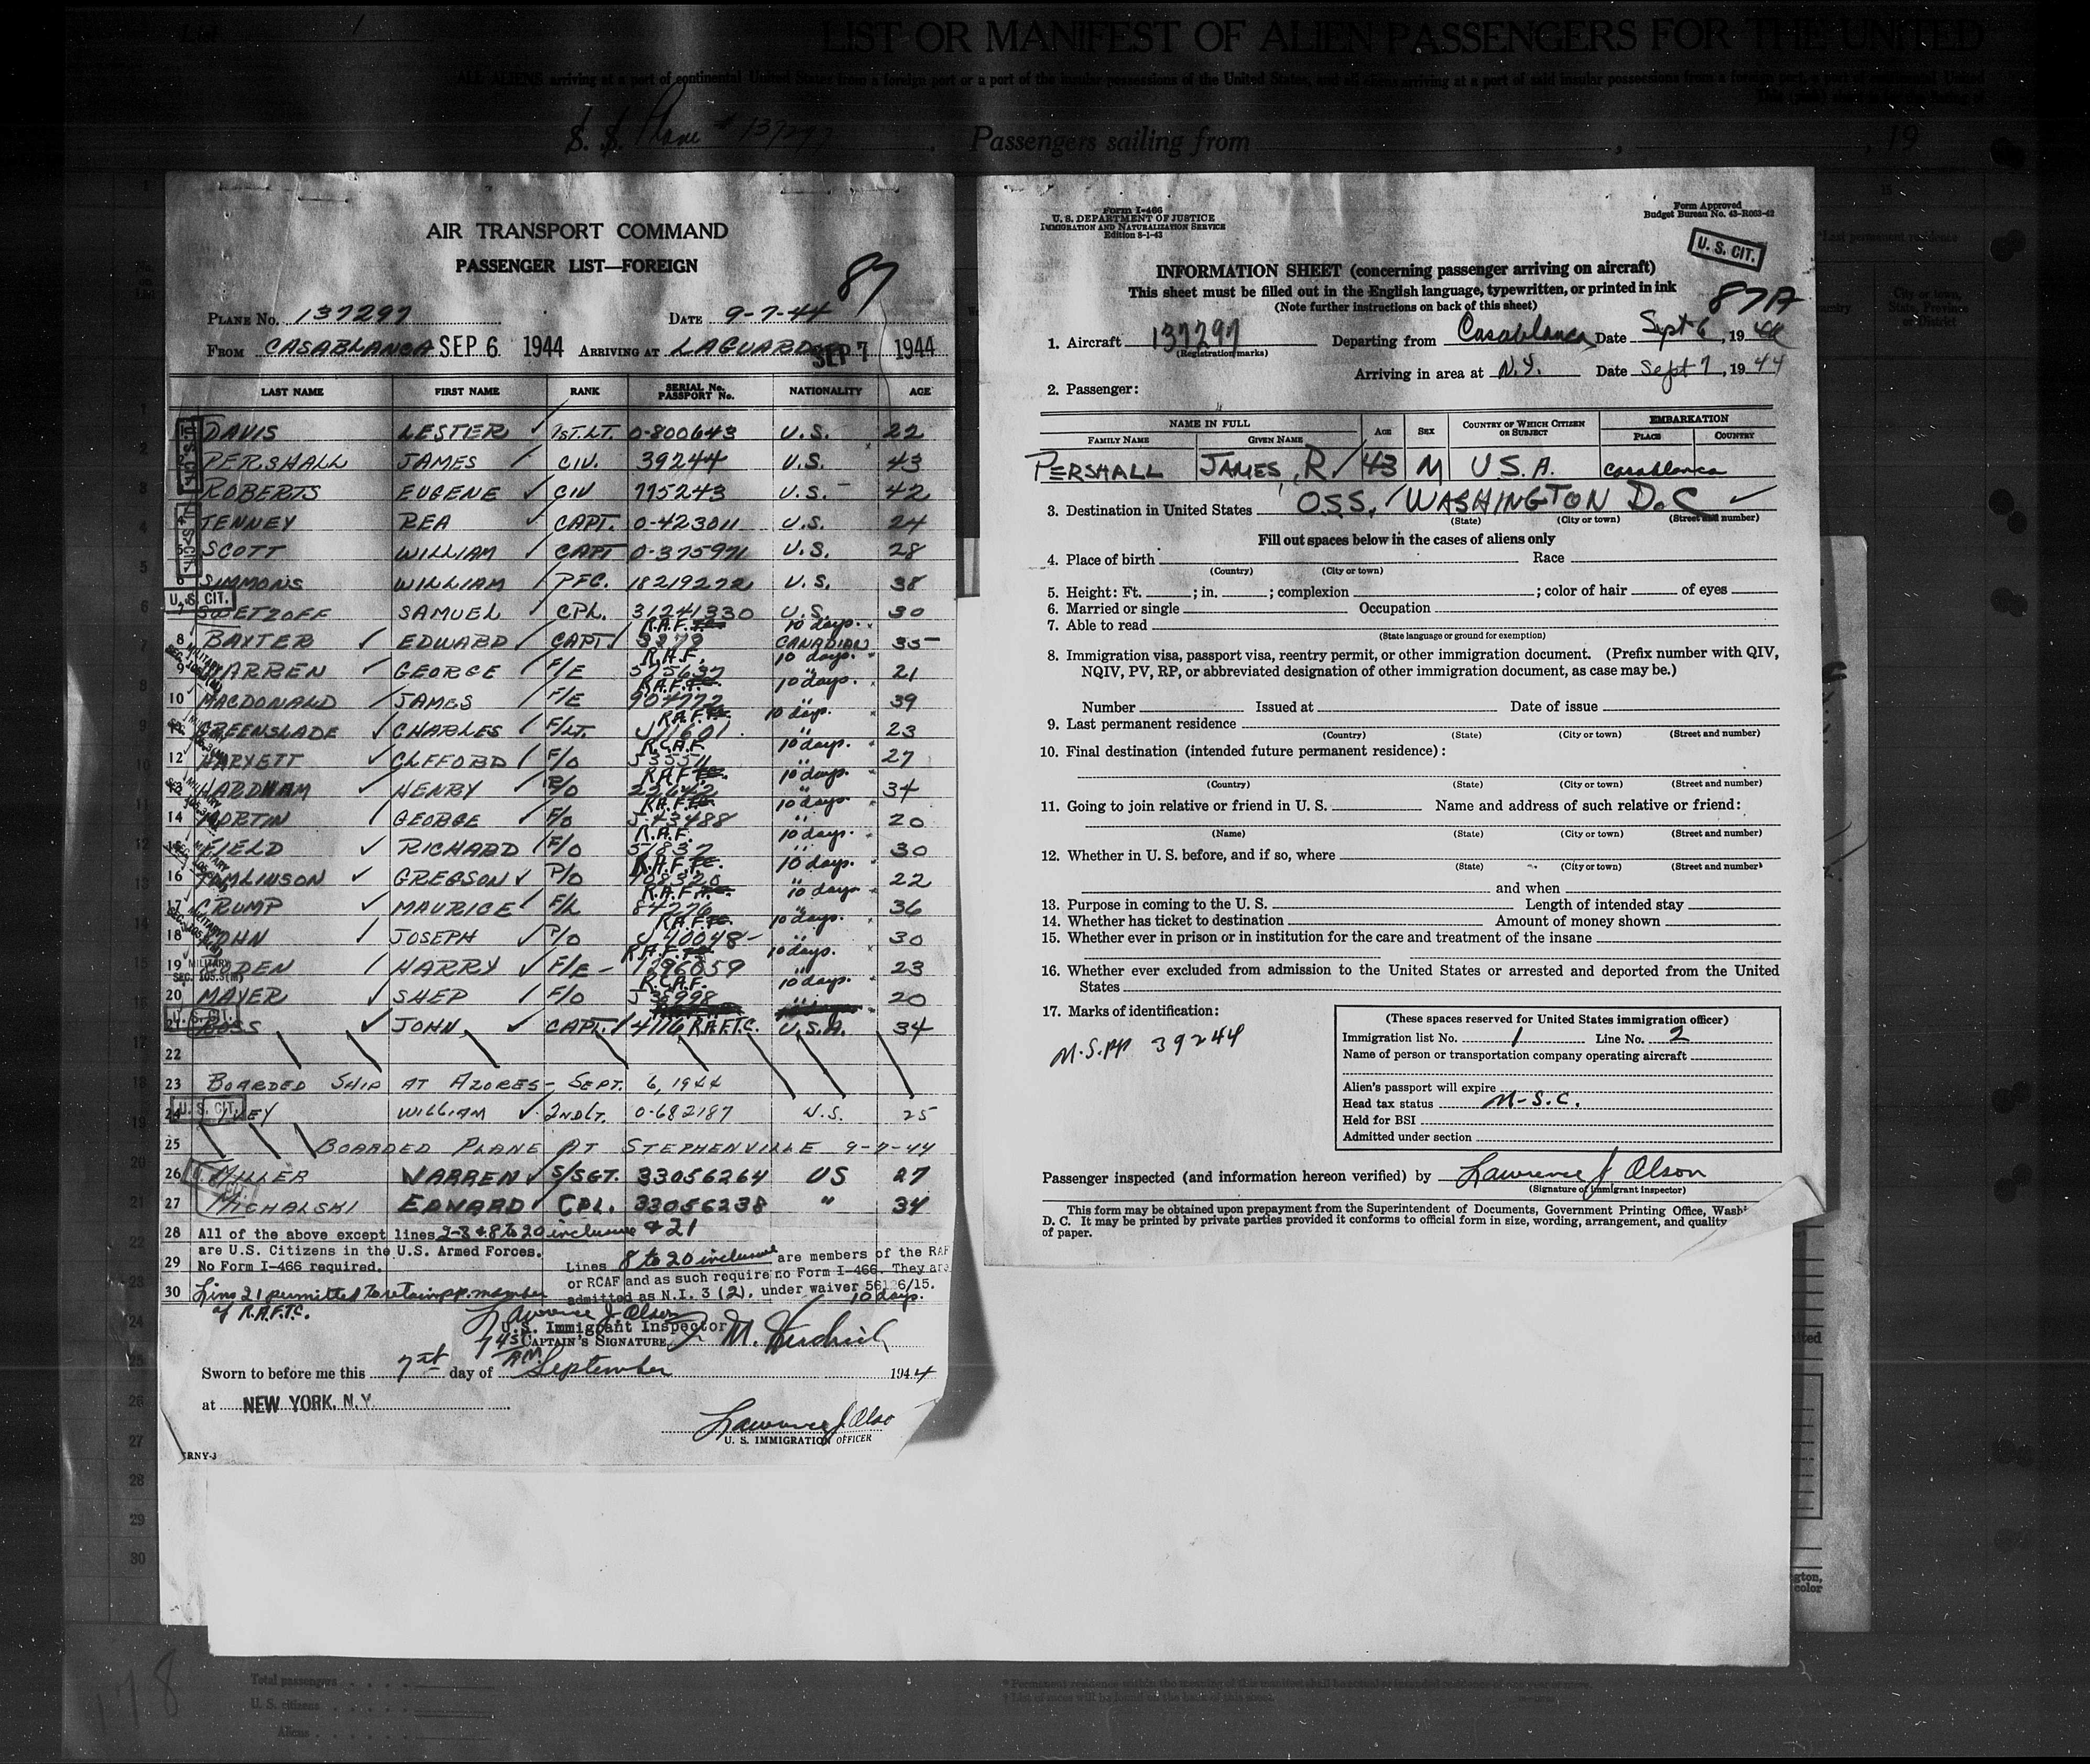 List 1
LIST OR MANIFEST OF ALIEN PASSENGERS FOR THE UNITED
ALL ALIENS arriving at a port of continental United States from a foreign port or a port of the insular possessions of the United States, and all aliens arriving at a port of said insular possessions from a foreign port, a port of continental United
S. S. Plane # 137297 Passengers sailing from , , 19
AIR TRANSPORT COMMAND
PASSENGER LIST—FOREIGN
87
PLANE No. 137297 DATE 9-7-44
FROM CASABLANCA SEP 6 1944 ARRIVING AT LAGUARD SEP 7 1944
LAST NAME FIRST NAME RANK SERIAL No. PASSPORT No. NATIONALITY AGE
DAVIS LESTER ✓ 1ST. LT. 0-800643 U.S. 22
PERSHALL JAMES CIV. 39244 U.S. 43
ROBERTS EUGENE ✓ CIV 115243 U.S. 42
4 TENNEY REA ✓ CAPT. 0-423011 U.S. 24
5 SCOTT WILLIAM CAPT 0-375971 U.S. 28
6 SIMMONS WILLIAM PFC. 18219272 U.S. 38
U.S. CIT.
7 SWETZOFF SAMUEL CPL. 31241330 U.S. 30
R.A.F. 10 days.
8 BAXTER ✓ EDWARD CAPT 3279 CANADIAN 35
R.A.F. 10 days.
9 WARREN ✓ GEORGE F/E 575637 21
R.A.F. 10 days.
10 MACDONALD JAMES F/E 904772 " 39
R.A.F. 10 days.
GREENSLADE ✓ CHARLES F/LT. J11601 " 23
R.C.A.F. 10 days.
12 HARYETT ✓ CLFFORD F/O J35511 " 27
R.A.F. 10 days.
HARDHAM ✓ HENRY P/O 22642 " 34
R.A.F. 10 days.
14 MORTIN GEORGE F/O J43488 " 20
R.A.F. 10 days.
FIELD ✓ RICHARD F/O 51837 " 30
R.A.F. 10 days.
16 TOMLINSON ✓ GREGSON ✓ P/O 108320 " 22
R.A.F. 10 days
17 CRUMP MAURICE F/L 84276 " 36
R.A.F. 10 days.
18 KOHN JOSEPH ✓ P/O J40048 " 30
R.A.F. 10 days.
19 HARRY ✓ F/E 1296059 23
MILITARY SEC. 105.3(M)
R.C.A.F. 10 days.
20 MAYER ✓ SHEP F/O J36998 20
U.S. CIT.
21 ROSS ✓ JOHN ✓ CAPT. 4116 R.A.F.T.C. U.S.A. 34
22
23 BOARDED SHIP AT AZORES - SEPT. 6, 1944
U.S. CIT.
24 IVEY WILLIAM ✓ 2ND LT. 0-682187 U.S. 25
25 BOARDED PLANE AT STEPHENVILLE 9-7-44
26 MILLER WARREN ✓ S/SGT. 33056264 US 27
27 MICHALSKI EDWARD CPL. 33056238 " 34
28 All of the above except lines 2-3 & 8 to 20 inclusive & 21
are U.S. Citizens in the U.S. Armed Forces.
29 No Form I-466 required.
Lines 8 to 20 inclusive are members of the RAF
or RCAF and as such require no Form I-466. They are
admitted as N.I. 3 (2), under waiver 56126/15.
10 days.
30 Line 21 permitted to retain pp. member
of R.A.F.T.C.
Lawrence J. Olson
U.S. Immigrant Inspector
7 45 AM
CAPTAIN'S SIGNATURE
Sworn to before me this 7th day of September 1944
at NEW YORK, N.Y.
Lawrence J. Olso
U. S. IMMIGRATION OFFICER
RNY-3
Form I-466
U. S. DEPARTMENT OF JUSTICE
IMMIGRATION AND NATURALIZATION SERVICE
Edition 8-1-43
Form Approved
Budget Bureau No. 43-R063-42
U. S. CIT.
INFORMATION SHEET (concerning passenger arriving on aircraft)
This sheet must be filled out in the English language, typewritten, or printed in ink
(Note further instructions on back of this sheet)
87A
1. Aircraft 137297 Departing from Casablanca Date Sept 6, 1944
(Registration marks)
Arriving in area at N.Y. Date Sept 7, 1944
2. Passenger:
NAME IN FULL AGE SEX COUNTRY OF WHICH CITIZEN OR SUBJECT EMBARKATION
FAMILY NAME GIVEN NAME PLACE COUNTRY
PERSHALL JAMES, R. 43 M U.S.A. Casablanca
3. Destination in United States O.S.S. WASHINGTON D.C ✓
(State) (City or town) (Street and number)
Fill out spaces below in the cases of aliens only
4. Place of birth Race
(Country) (City or town)
5. Height: Ft. ; in. ; complexion ; color of hair of eyes
6. Married or single Occupation
7. Able to read
(State language or ground for exemption)
8. Immigration visa, passport visa, reentry permit, or other immigration document. (Prefix number with QIV,
NQIV, PV, RP, or abbreviated designation of other immigration document, as case may be.)
Number Issued at Date of issue
9. Last permanent residence
(Country) (State) (City or town) (Street and number)
10. Final destination (intended future permanent residence):
(Country) (State) (City or town) (Street and number)
11. Going to join relative or friend in U. S. Name and address of such relative or friend:
(Name) (State) (City or town) (Street and number)
12. Whether in U. S. before, and if so, where
(State) (City or town) (Street and number)
and when
13. Purpose in coming to the U. S. Length of intended stay
14. Whether has ticket to destination Amount of money shown
15. Whether ever in prison or in institution for the care and treatment of the insane
16. Whether ever excluded from admission to the United States or arrested and deported from the United
States
17. Marks of identification:
M.S.PP 39244
(These spaces reserved for United States immigration officer)
Immigration list No. 1 Line No. 2
Name of person or transportation company operating aircraft
Alien's passport will expire
Head tax status M-S.C.
Held for BSI
Admitted under section
Passenger inspected (and information hereon verified) by Lawrence J. Olson
(Signature of immigrant inspector)
This form may be obtained upon prepayment from the Superintendent of Documents, Government Printing Office, Wash
D. C. It may be printed by private parties provided it conforms to official form in size, wording, arrangement, and quality
of paper.
178
Total passengers
U. S. citizens
Aliens